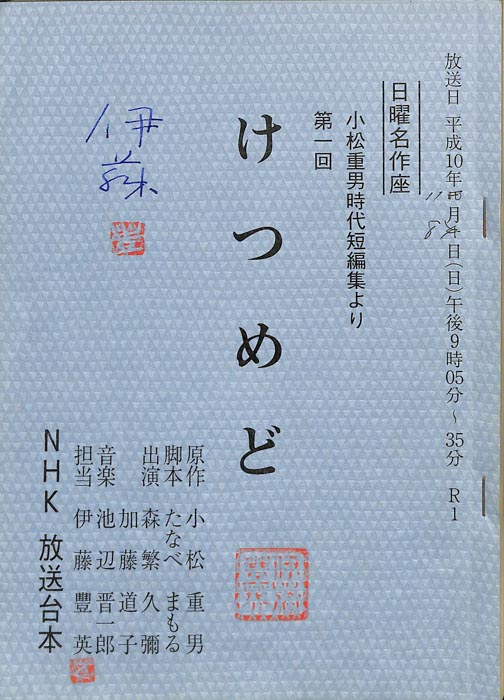 放送日 平成10年 月 日(日)午後9時05分～35分 R1
11 8
日曜名作座
小松重男時代短編集より
第一回
けつめど
伊藤
原作 小松 重男
脚本 たなべ まもる
出演 森繁 久彌
加藤 道子
音楽 池辺 晋一郎
担当 伊藤 豐英
NHK 放送台本